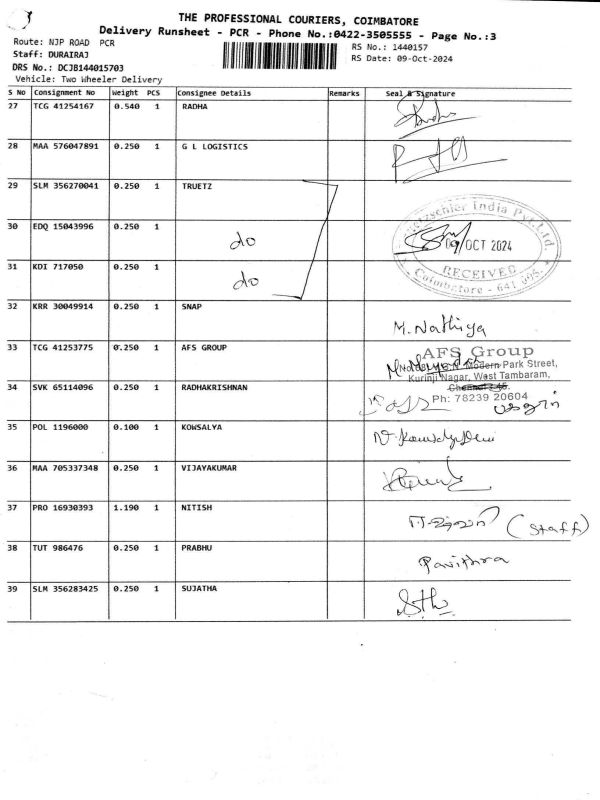 THE PROFESSIONAL COURIERS, COIMBATORE
Delivery Runsheet - PCR - Phone No.:0422-3505555 - Page No.:3
Route: NJP ROAD PCR
RS No.: 1440157
Staff: DURAIRAJ
RS Date: 09-Oct-2024
DRS No.: DCJB144015703
Vehicle: Two Wheeler Delivery
S No Consignment No Weight PCS Consignee Details Remarks Seal & Signature
27 TCG 41254167 0.540 1 RADHA
28 MAA 576047891 0.250 1 G L LOGISTICS
29 SLM 356270041 0.250 1 TRUETZ
India Pvt. Ltd.
30 EDQ 15043996 0.250 1 do
09/OCT 2024
31 KDI 717050 0.250 1 do
RECEIVED
Coimbatore - 641
32 KRR 30049914 0.250 1 SNAP M. Nathiya
33 TCG 41253775 0.250 1 AFS GROUP
AFS Group
Modern Park Street,
Kurinji Nagar, West Tambaram,
34 SVK 65114096 0.250 1 RADHAKRISHNAN
Ph: 78239 20604
35 POL 1196000 0.100 1 KOWSALYA
36 MAA 705337348 0.250 1 VIJAYAKUMAR
37 PRO 16930393 1.190 1 NITISH (Staff)
38 TUT 986476 0.250 1 PRABHU Pavithra
39 SLM 356283425 0.250 1 SUJATHA